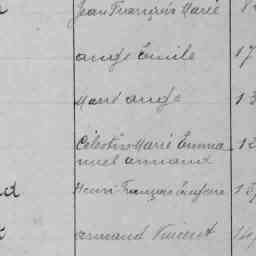 Jean François Marie
ange Emile 17
Marie ange 13
Célestin Marie Emma
nuel armand
Henri François Eugène 15
armand Vincent 14